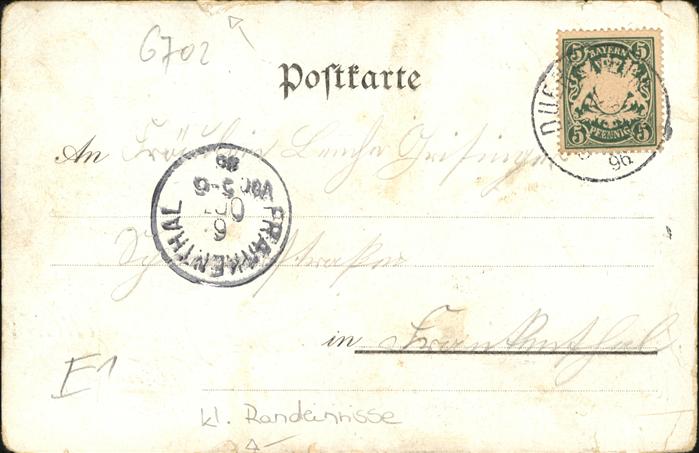 6702
Postkarte
BAYERN
5 5
5 PFENNIG 5
DUE
96
An Fräulein
FRANKENTHAL
6
OCT
VOR 5-6
96
straße
in Frankenthal
E1
kl. Randeinrisse